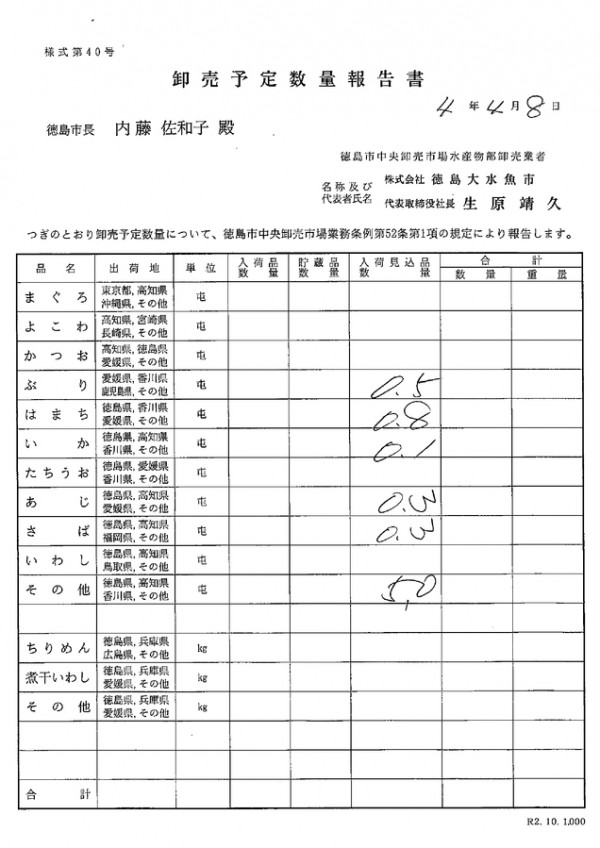 様式第40号
卸売予定数量報告書
4年4月8日
徳島市長 内藤 佐和子 殿
徳島市中央卸売市場水産物部卸売業者
名称及び 株式会社 徳島大水魚市
代表者氏名 代表取締役社長 生原靖久
つぎのとおり卸売予定数量について、徳島市中央卸売市場業務条例第52条第1項の規定により報告します。
品名 出荷地 単位 入荷品数量 貯蔵品数量 入荷見込品数量 合計
数量 重量
まぐろ 東京都, 高知県 屯
沖縄県, その他
よこわ 高知県, 宮崎県 屯
長崎県, その他
かつお 高知県, 徳島県 屯
愛媛県, その他
ぶり 愛媛県, 香川県 屯 0.5
鹿児島県, その他
はまち 徳島県, 香川県 屯 0.8
愛媛県, その他
いか 徳島県, 高知県 屯 0.1
香川県, その他
たちうお 徳島県, 愛媛県 屯
香川県, その他
あじ 徳島県, 高知県 屯 0.3
愛媛県, その他
さば 徳島県, 高知県 屯 0.3
福岡県, その他
いわし 徳島県, 高知県 屯
鳥取県, その他
その他 徳島県, 高知県 屯 5,0
香川県, その他
ちりめん 徳島県, 兵庫県 kg
広島県, その他
煮干いわし 徳島県, 兵庫県 kg
愛媛県, その他
その他 徳島県, 兵庫県 kg
愛媛県, その他
合計
R2. 10. 1,000